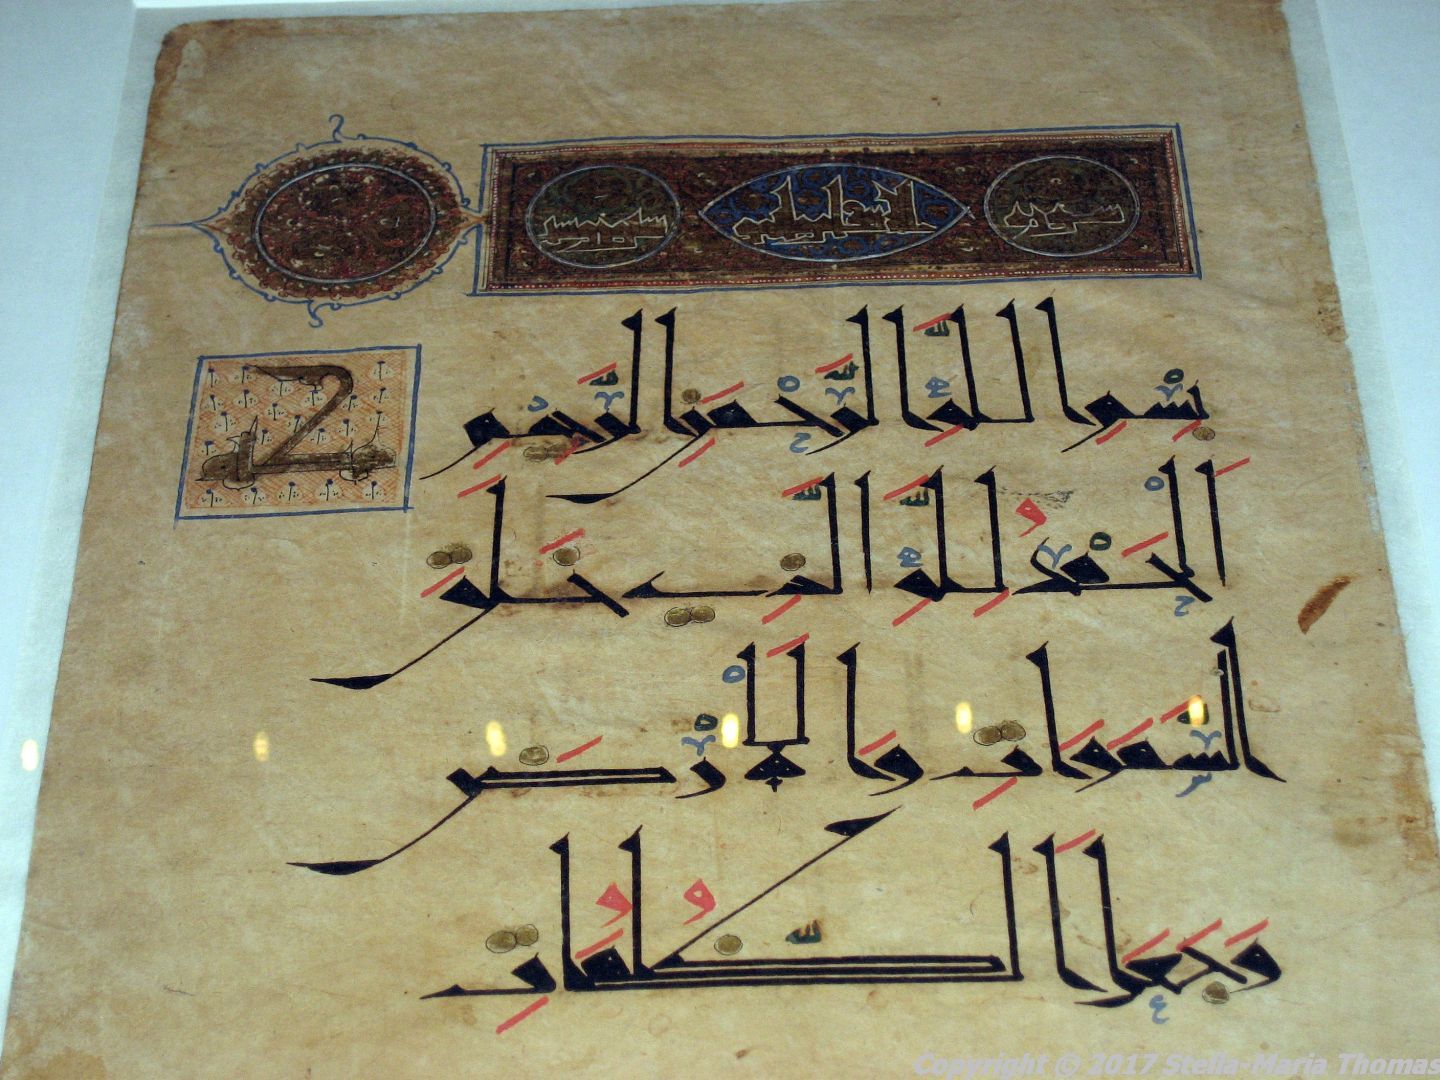 بِسْمِ اللَّهِ الرَّحْمَنِ الرَّحِيمِ
اَلْحَمْدُ لِلَّهِ الَّذِي خَلَقَ
السَّمَوَاتِ وَالْاَرْضَ
وَجَعَلَ الظُّلُمَاتِ
Copyright © 2017 Stella-Maria Thomas